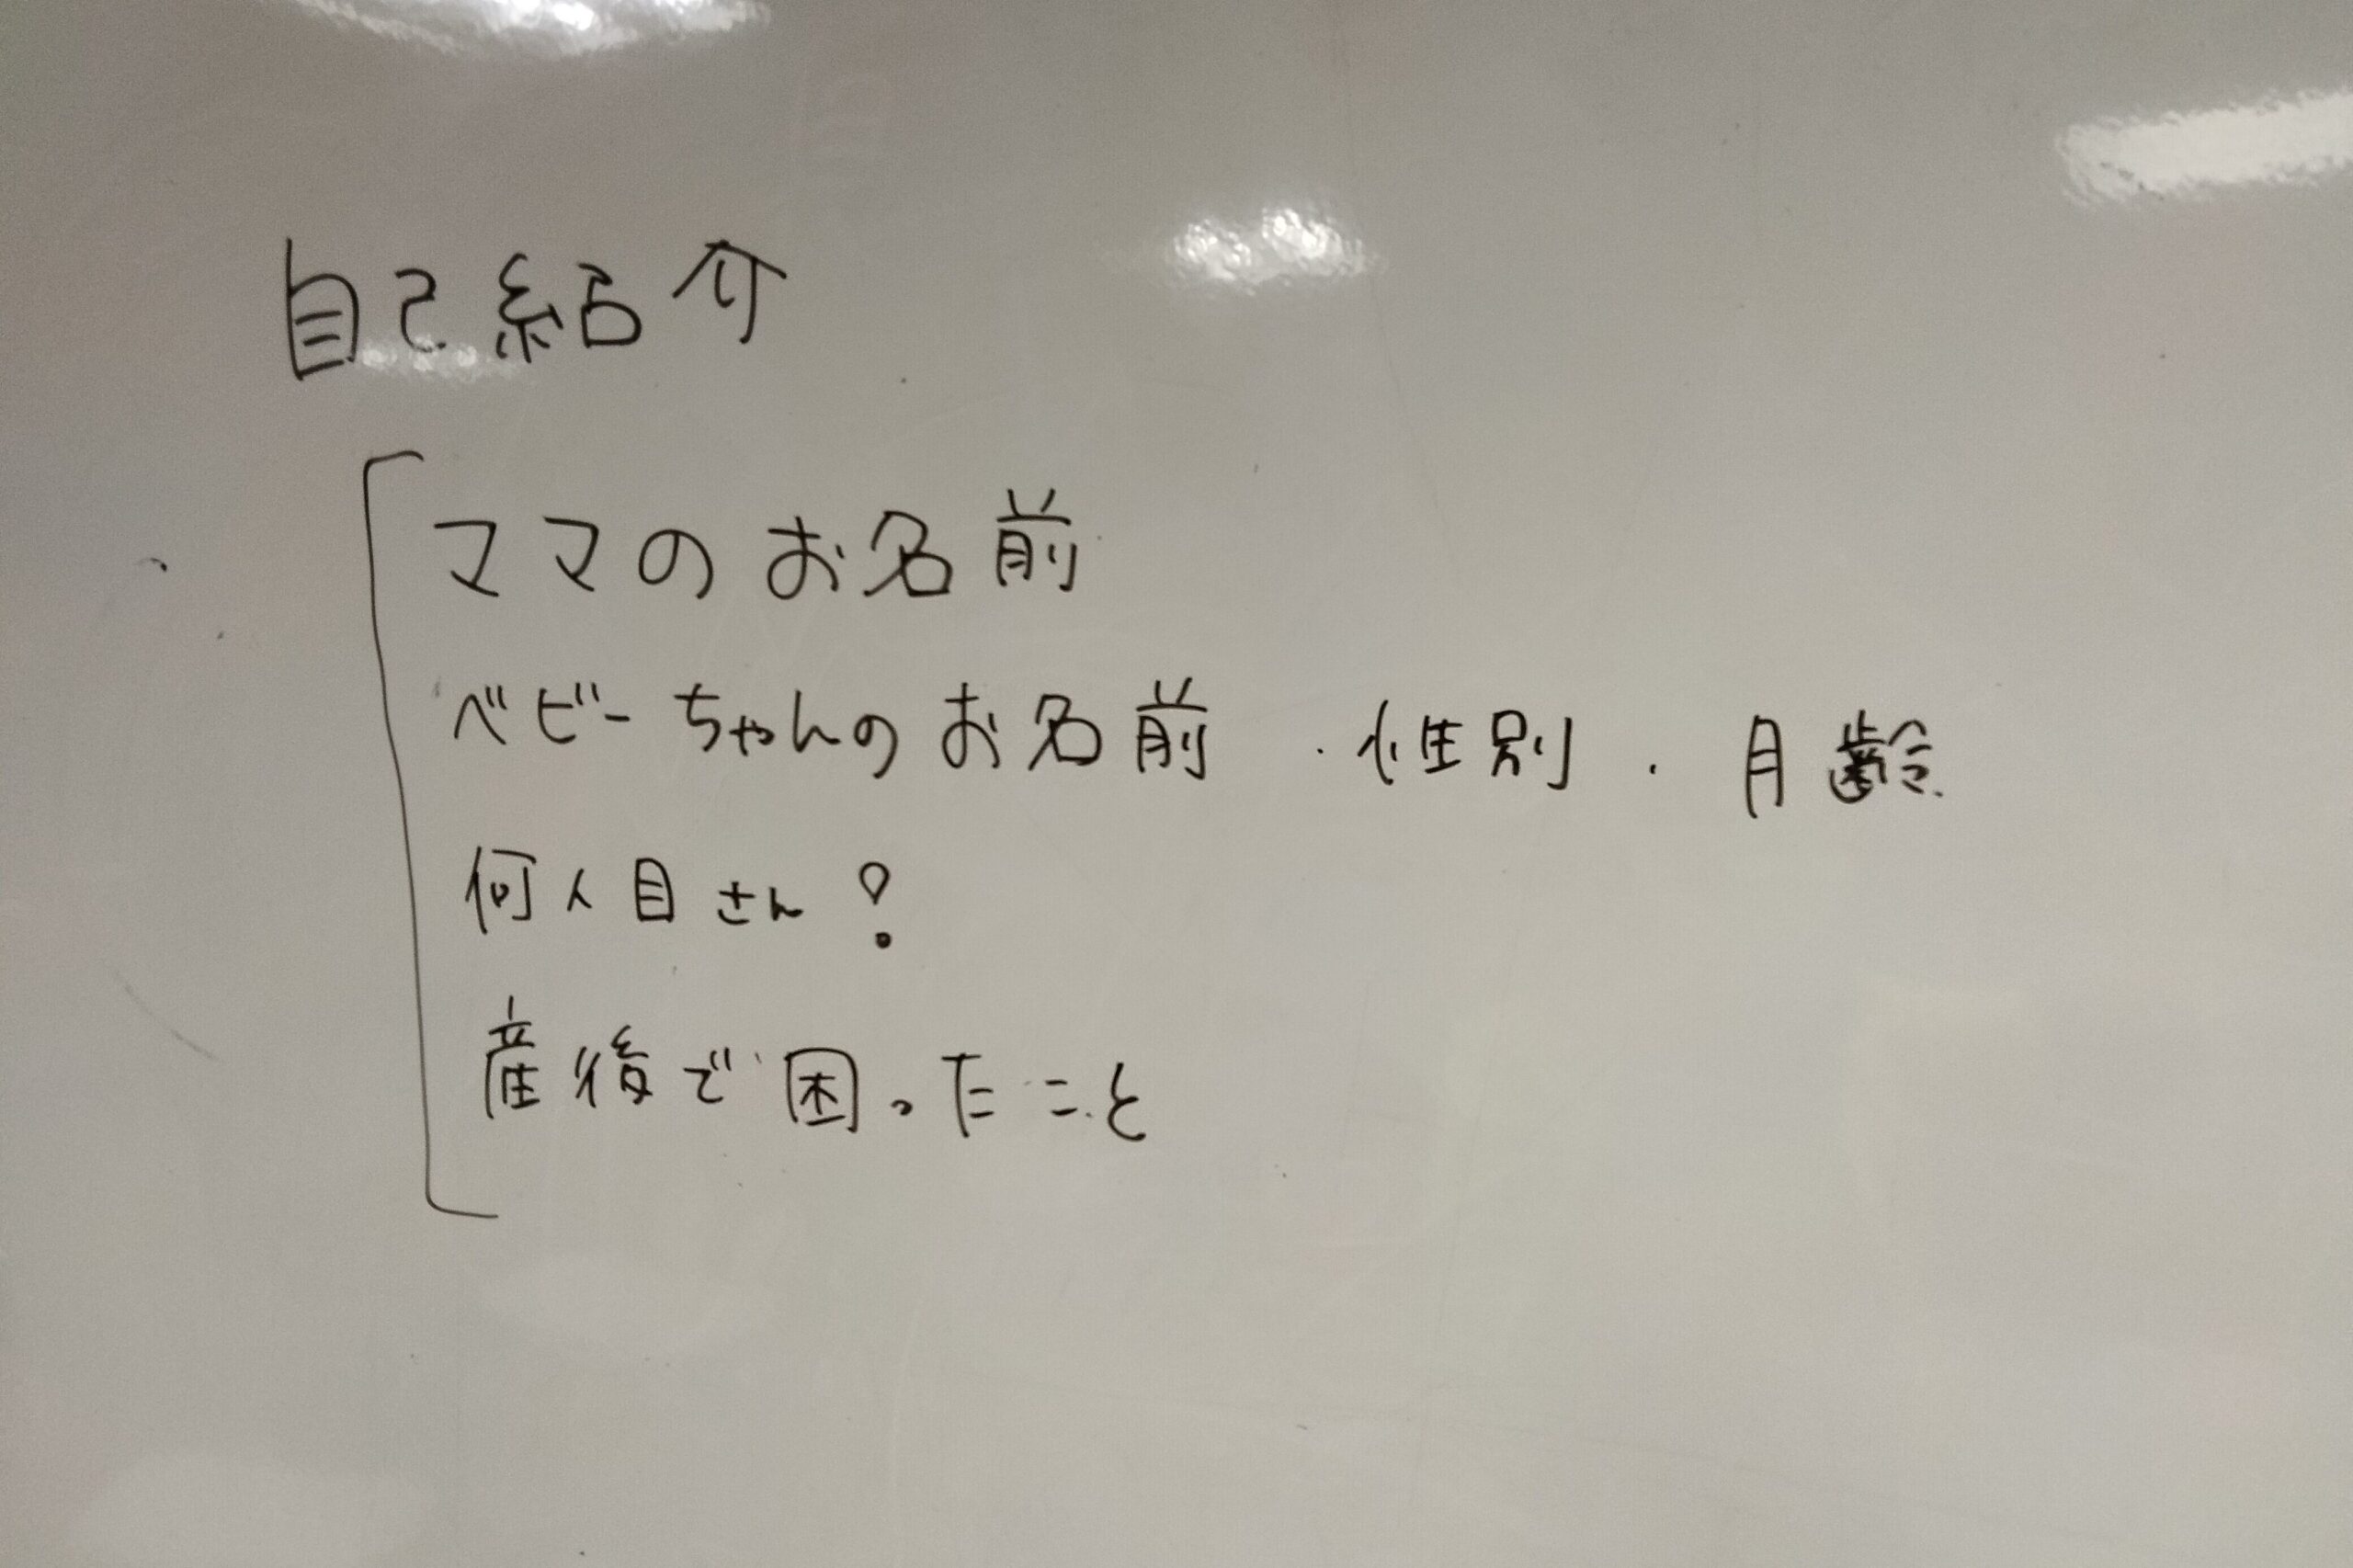 自己紹介
ママのお名前
ベビーちゃんのお名前 ・性別・月齢
何人目さん?
産後で困ったこと